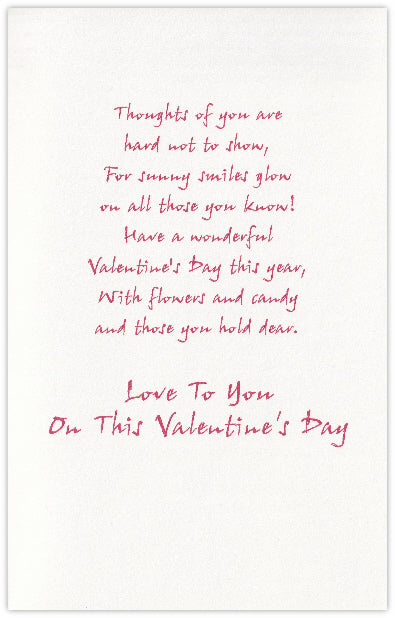 Thoughts of you are
hard not to show,
For sunny smiles glow
on all those you know!
Have a wonderful
Valentine's Day this year,
With flowers and candy
and those you hold dear.
Love To You
On This Valentine's Day